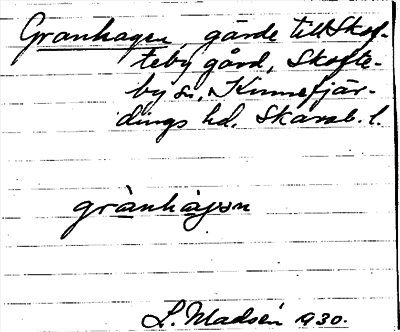 Granhagen, gärde till Skof-
teby gård, Skofte-
by sn, Kinnefjär-
dings hd. Skarab. l.
grànhàgən
L. Madsén 1930.